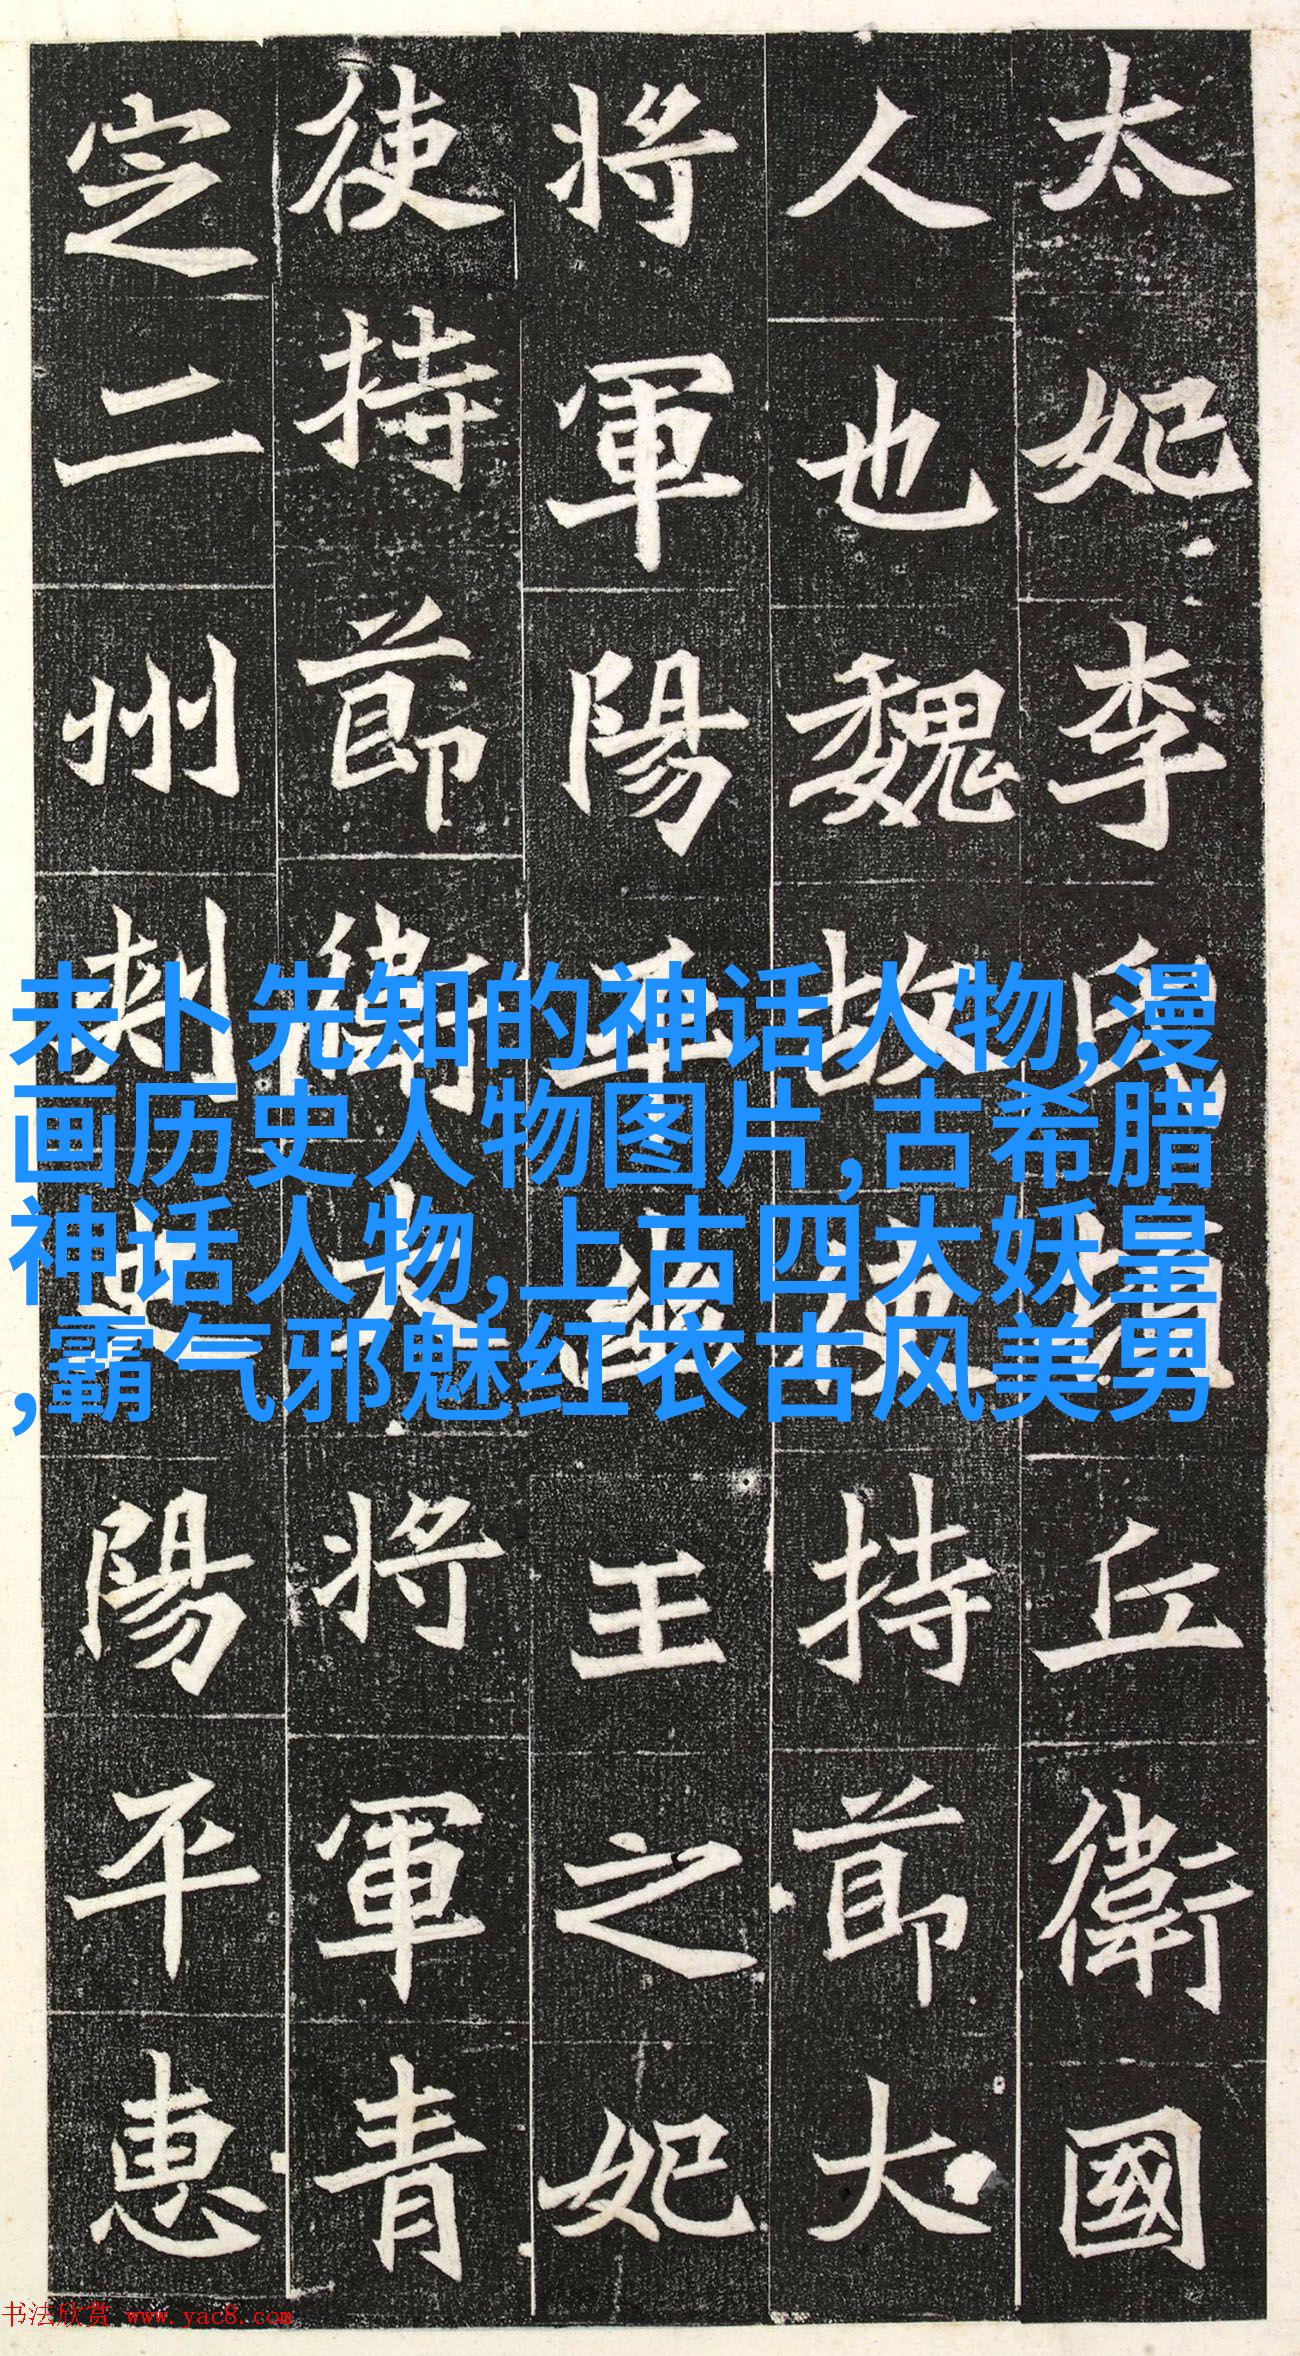 太妃李氏頓丘衛國
人也魏故使持節大
將軍陽平幽王之妃
使持節衛大將軍青
定二州刺史陽平惠
未卜先知的神话人物,漫
画历史人物图片,古希腊
神话人物,上古四大妖皇
,霸气邪魅红衣古风美男
书法欣赏 www.yac8.com